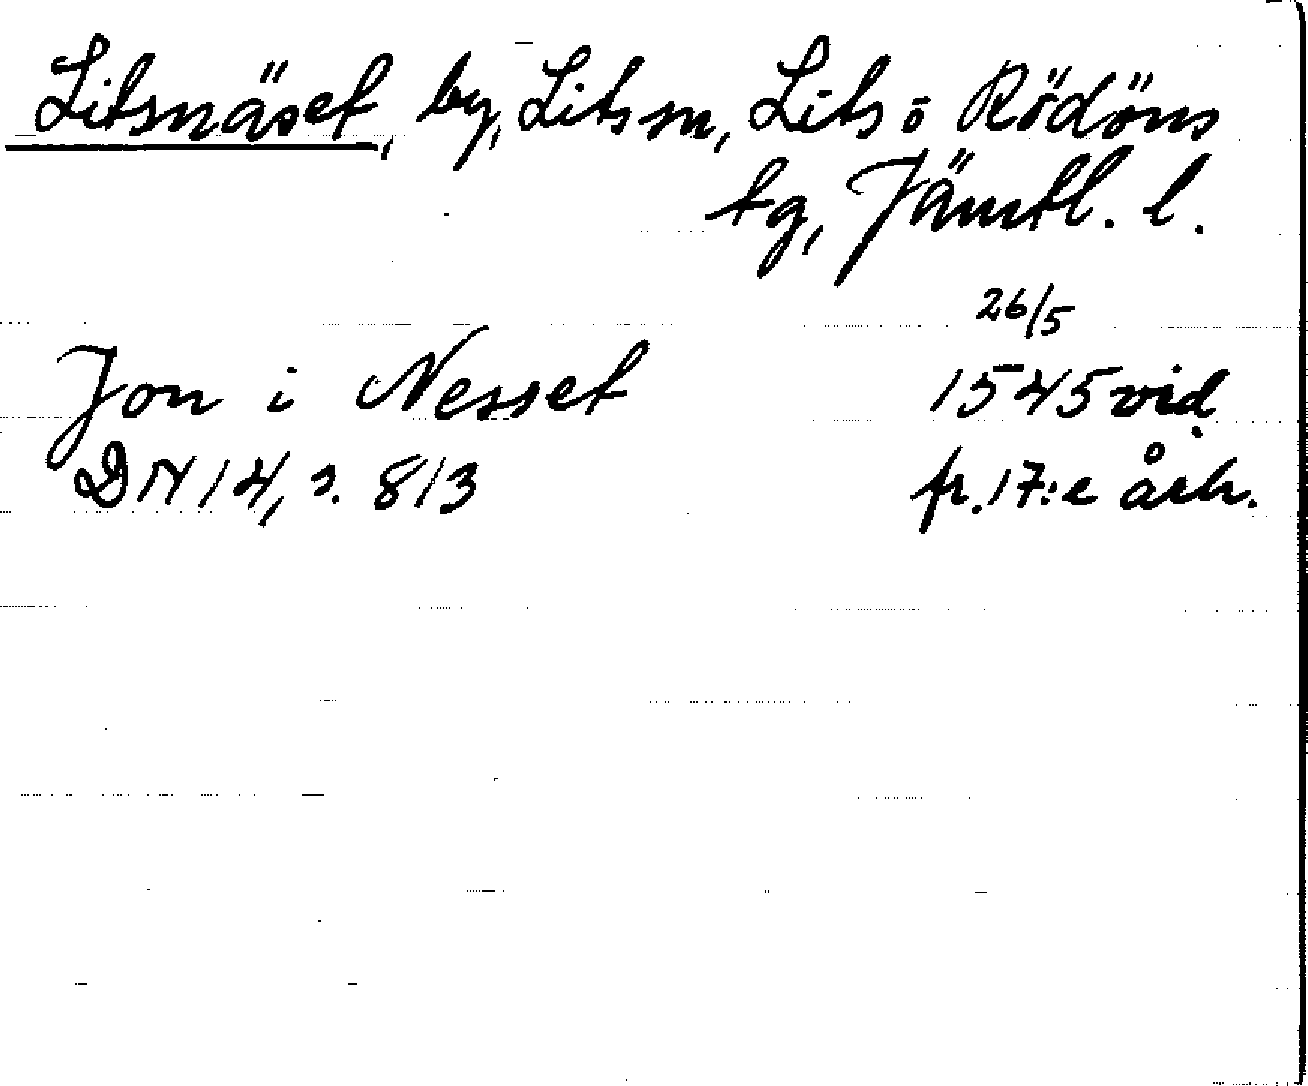 Litsnäset, by, Lits sn, Lits o Rödöns
tg, Jämtl. l.
26/5
Jon i Nesset 1545 vid.
DN 14, s. 813 fr. 17:e årh.